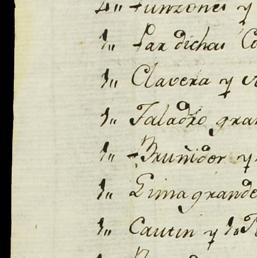 4,, Punzones y
1,, Par dichas Co
1,, Clavera y
1,, Taladro gran
1,, Bruñidor y
1,, Lima grande
1,, Cautin y 1,,